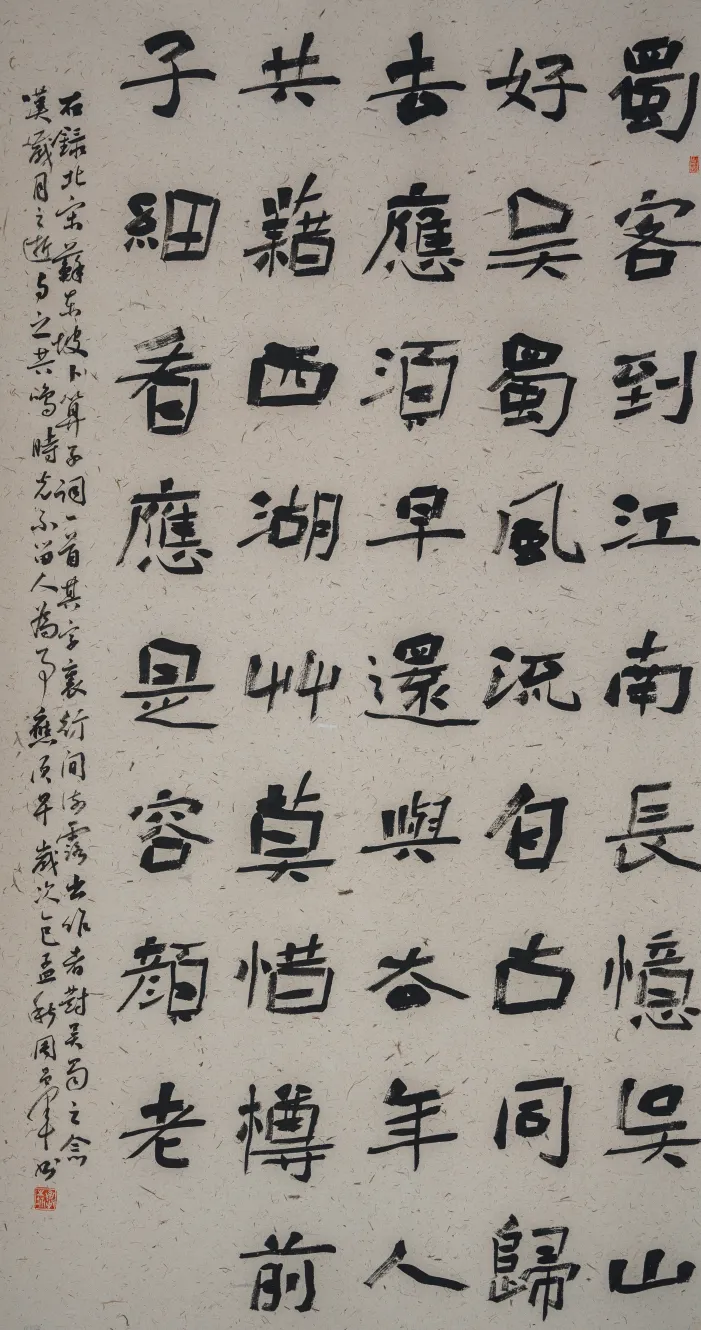 蜀客到江南長憶吳山
好吳蜀風流自古同歸
去應湏早還與厺年人
共藉西湖艸莫惜樽前
子細看應是容顏老
右錄北宋蘇東坡卜算子詞一首其字裏行間流露出作者對吳蜀之念
嘆歲月之逝与之共鳴時光不留人為事應須早歲次乙巳孟秋周軍書